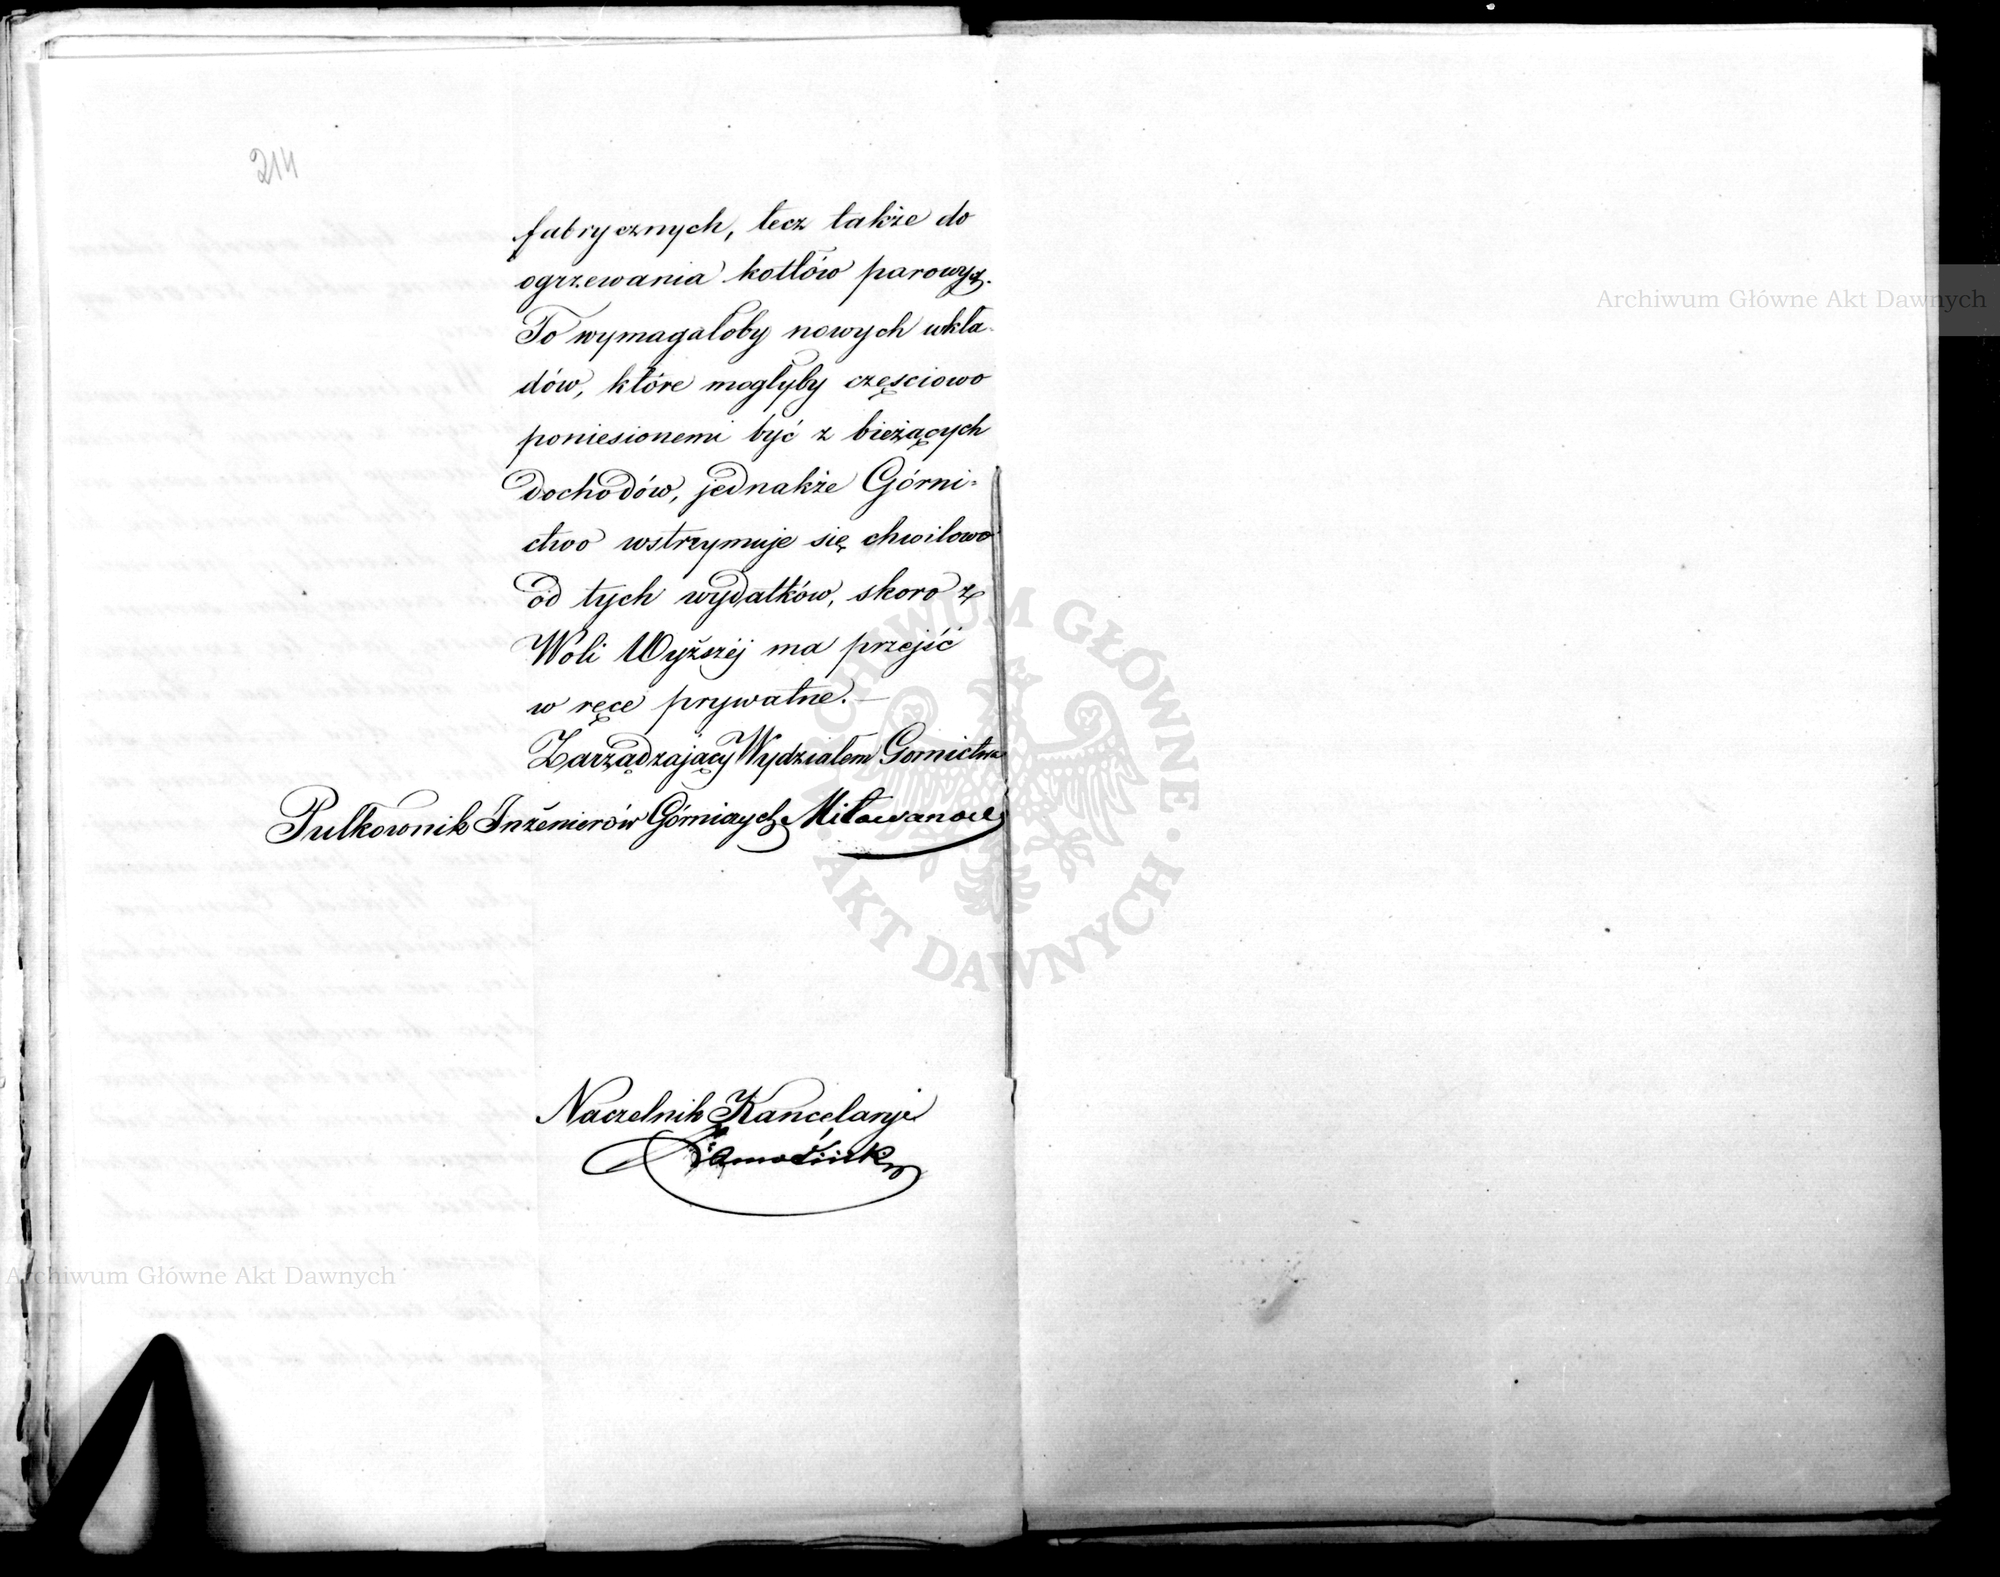 214
fabrycznych, lecz także do
ogrzewania kotłów parowych.
To wymagałoby nowych ukła-
dów, które mogłyby częsciowo
poniesionemi być z bieżących
dochodów, jednakże Górni-
ctwo wstrzymuje się chwilowo
od tych wydatków, skoro z
Woli Wyższéj ma przejść
w ręce prywatne. —
Zarządzający Wydziałem Gornictwa
Pułkownik Inżenierów Górniczych
Naczelnik Kancelaryi
Archiwum Główne Akt Dawnych
Archiwum Główne Akt Dawnych
ARCHIWUM GŁÓWNE · AKT DAWNYCH ·